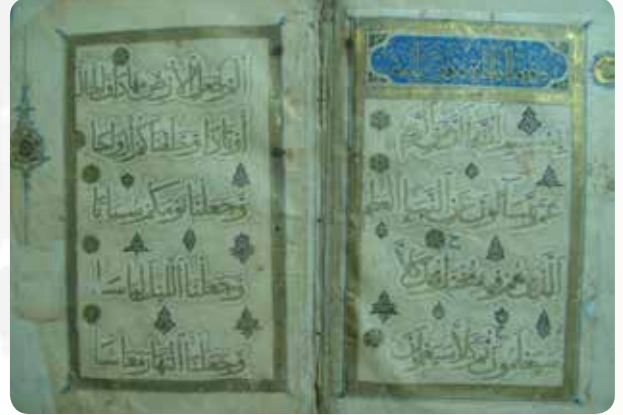 بسم الله الرحمن الرحيم
عم يتسآلون عن النبإ العظيم
الذي هم فيه مختلفون كلا
سيعلمون ثم كلا سيعلمون
ألم نجعل الأرض مهادا والجبال
أوتادا وخلقناكم أزواجا
وجعلنا نومكم سباتا
وجعلنا الليل لباسا
وجعلنا النهار معاشا